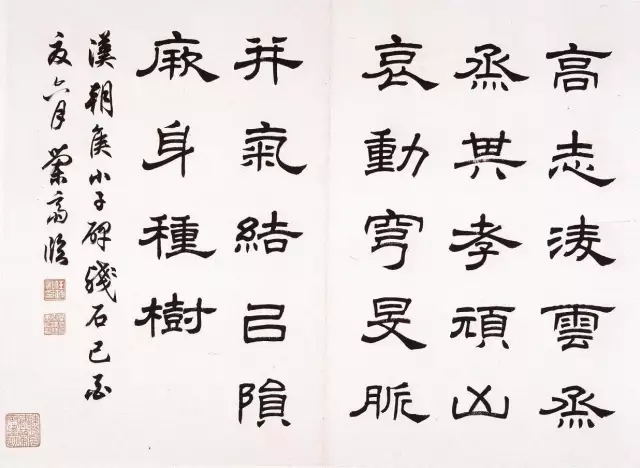 高志淩雲烝
烝其孝頑凶
哀動穹旻脈
并氣結㠯隕
厥身種樹
漢朝侯小子碑殘石己酉
夏六月齋臨